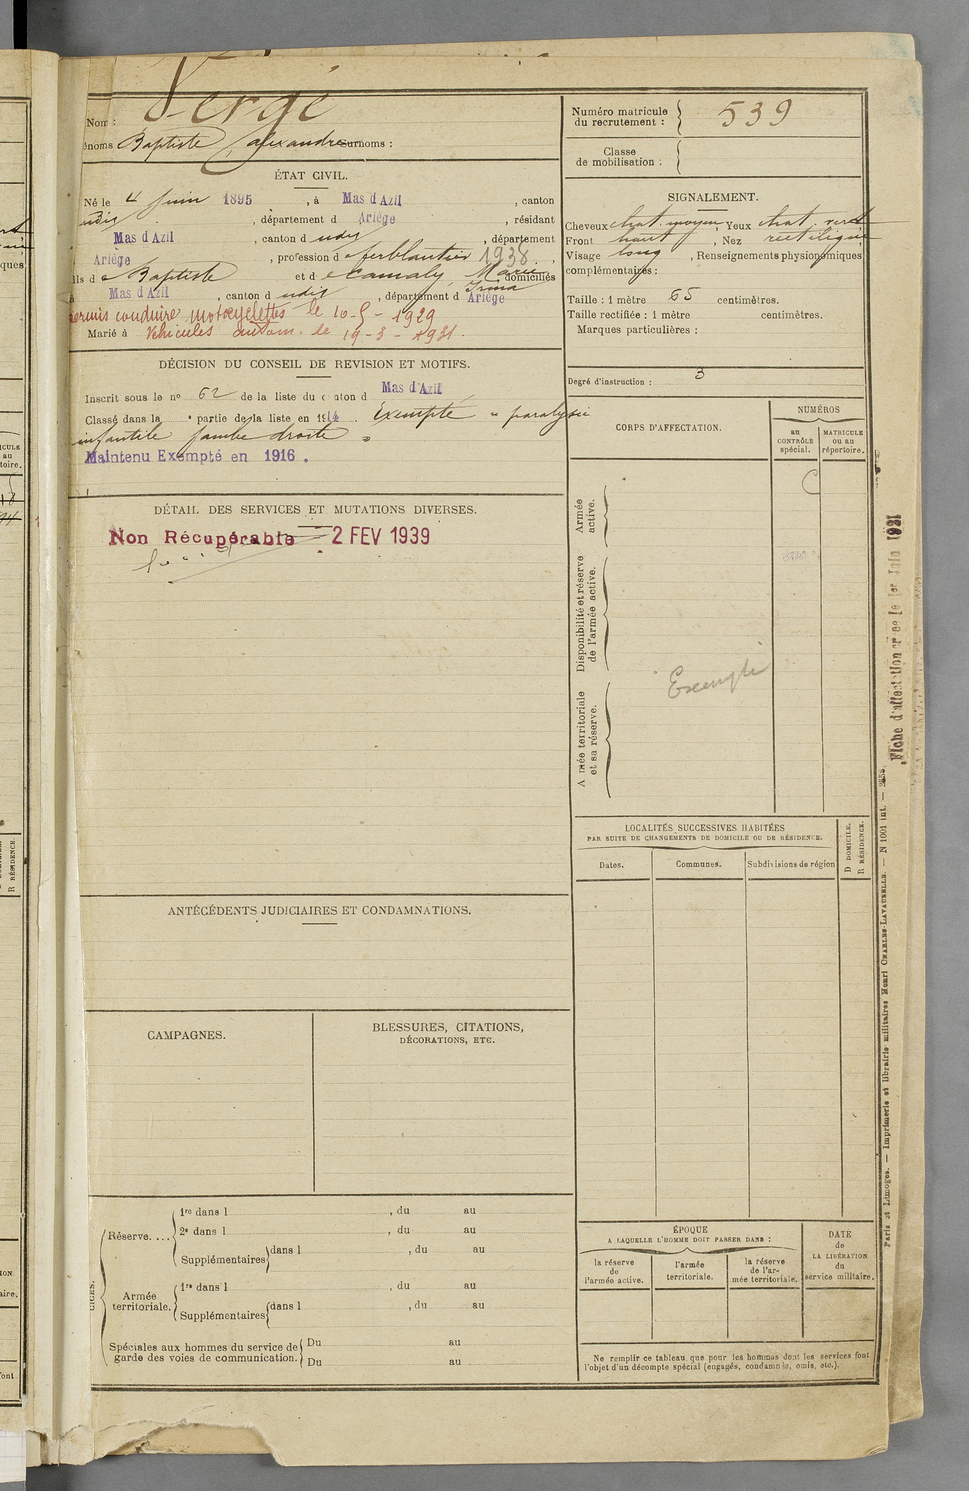 Nom : Vergé
énoms Baptiste Alexandre surnoms :
ÉTAT CIVIL.
Né le 4 Juin 1895, à Mas d'Azil, canton
udit, département d Ariège, résidant
Mas d'Azil, canton d udit, département
Ariège, profession d e ferblantier 1938.
ils d e Baptiste et d e Camaly Marie Irma domiciliés
à Mas d'Azil, canton d udit, département d Ariège
permis conduire motocyclettes le 10-5-1929
Marié à
Véhicules autom. le 19-3-1931.
DÉCISION DU CONSEIL DE REVISION ET MOTIFS.
Inscrit sous le nº 62 de la liste du canton d Mas d'Azil
Classé dans la ° partie de la liste en 1914. Exempté " paralysie
infantile jambe droite "
Maintenu Exempté en 1916.
DÉTAIL DES SERVICES ET MUTATIONS DIVERSES.
Non Récupérable 2 FEV 1939
ANTÉCÉDENTS JUDICIAIRES ET CONDAMNATIONS.
CAMPAGNES.
BLESSURES, CITATIONS,
DÉCORATIONS, ETC.
Réserve....
1re dans l , du au
2e dans l , du au
Supplémentaires dans l , du au
Armée
territoriale.
1re dans l , du au
Supplémentaires dans l , du au
Spéciales aux hommes du service de
garde des voies de communication.
Du au
Du au
Numéro matricule
du recrutement : 539
Classe
de mobilisation :
SIGNALEMENT.
Cheveux chat. moyen, Yeux chat. verd
Front haut, Nez rectiligne
Visage long, Renseignements physionomiques
complémentaires :
Taille : 1 mètre 65 centimètres.
Taille rectifiée : 1 mètre centimètres.
Marques particulières :
Degré d'instruction : 3
CORPS D'AFFECTATION.
NUMÉROS
au
CONTRÔLE
spécial.
MATRICULE
ou au
répertoire.
Armée
active.
C
Disponibilité et réserve
de l'armée active.
Exempté
A mée territoriale
et sa réserve.
LOCALITÉS SUCCESSIVES HABITÉES
PAR SUITE DE CHANGEMENTS DE DOMICILE OU DE RÉSIDENCE.
Dates.
Communes.
Subdivisions de région
D DOMICILE.
R RÉSIDENCE.
ÉPOQUE
A LAQUELLE L'HOMME DOIT PASSER DANS :
la réserve
de
l'armée active.
l'armée
territoriale.
la réserve
de l'ar-
mée territoriale.
DATE
de
LA LIBÉRATION
du
service militaire.
Ne remplir ce tableau que pour les hommes dont les services font
l'objet d'un décompte spécial (engagés, condamnés, omis, etc.).
Paris et Limoges. — Imprimerie et librairie militaires Henri CHARLES-LAVAUZELLE. — N 1001 int. —
Fiche d'affectation créée le 1er Juin 1931